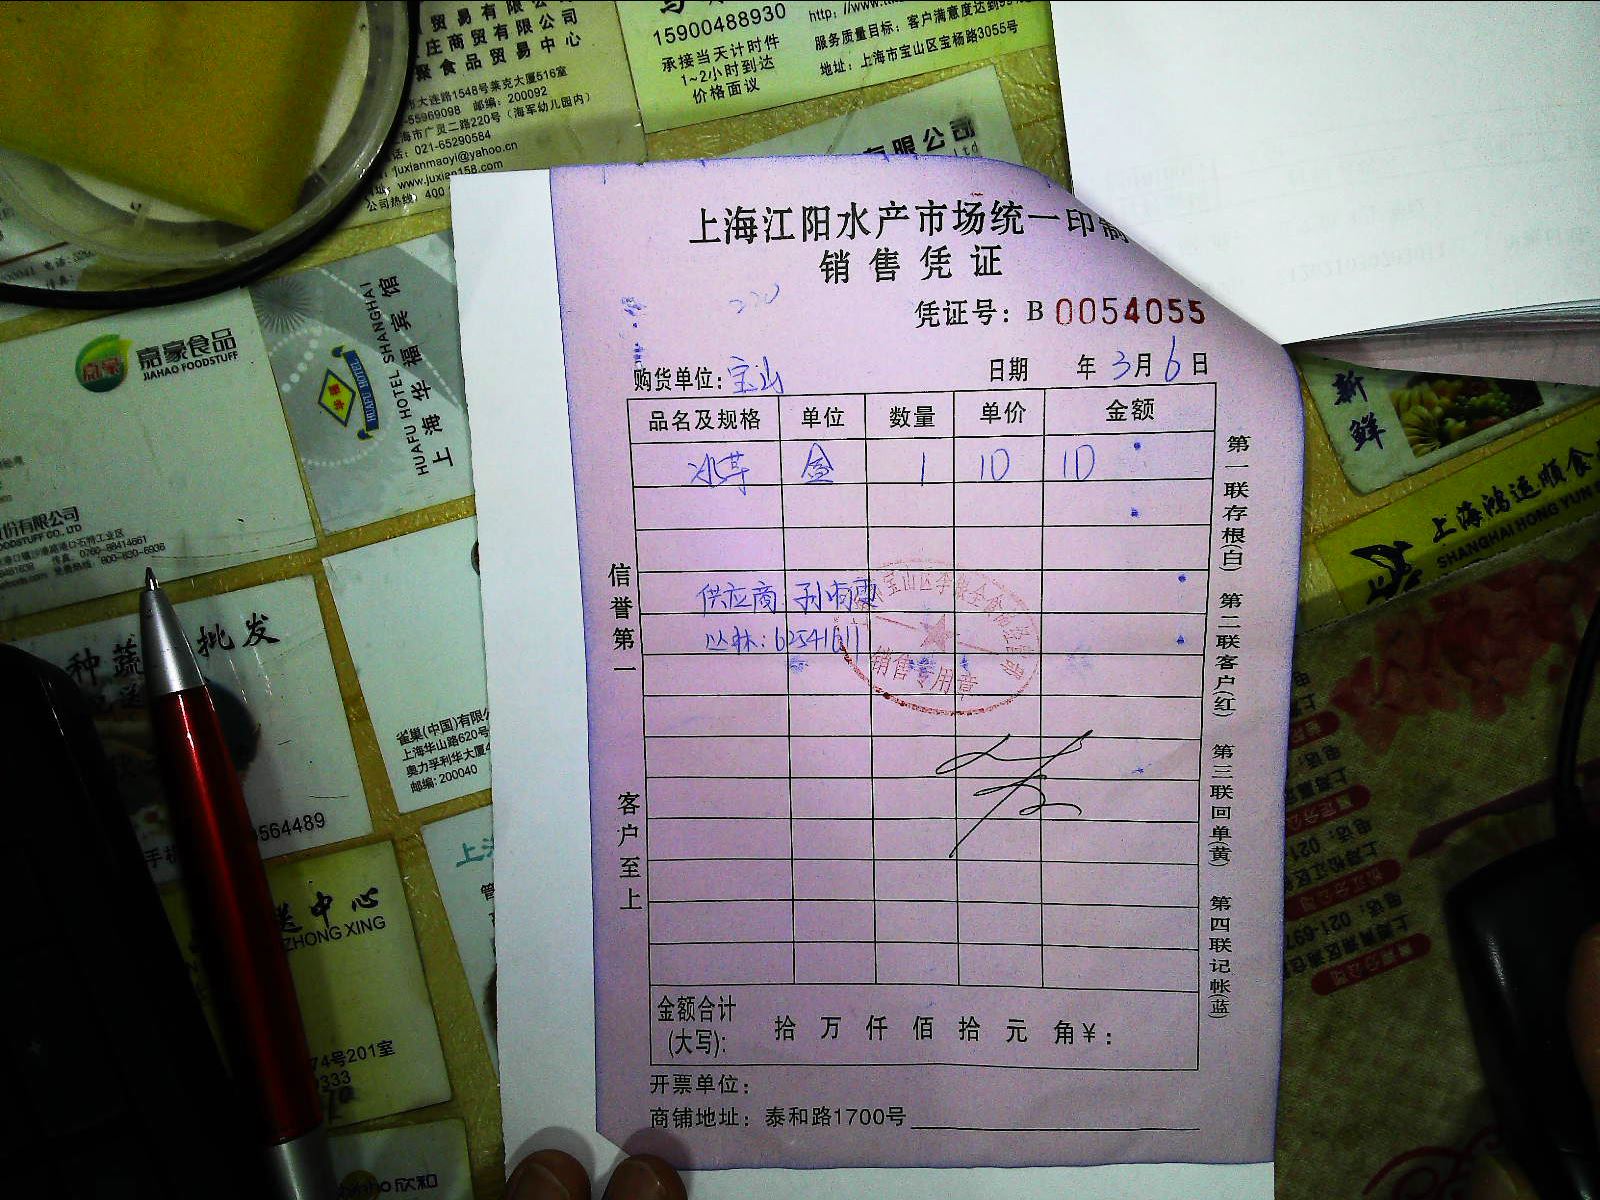 贸易有限公
庄商贸有限公司
聚食品贸易中心
市大连路1548号莱克大厦516室
-55969098 邮编：200092
海市广灵二路220号（海军幼儿园内）
话：021-65290584
juxianmaoyi@yahoo.cn
www.juxian158.com
公司热线：400
15900488930
承接当天计时件
1~2小时到达
价格面议
服务质量目标：客户满意度达到99
地址：上海市宝山区宝杨路3055号
有限公司
Ltd
嘉豪食品
JIAHAO FOODSTUFF
份有限公司
OODSTUFF CO., LTD
上海华福宾馆
HUAFU HOTEL SHANGHAI
HUAFU HOTEL
种蔬
批发
564489
雀巢(中国)有限公
上海华山路620号
奥力孚利华大厦4
邮编：200040
送中心
ZHONG XING
74号201室
0333
欣和
上海江阳水产市场统一印制
销售凭证
凭证号：B 0054055
购货单位：宝山 日期 年 3月 6日
品名及规格 单位 数量 单价 金额
冰草 盒 1 10 10
供应商 孙雨雯
丛林：62541611
销售专用章
信誉第一
客户至上
第一联存根(白) 第二联客户(红) 第三联回单(黄) 第四联记帐(蓝)
金额合计(大写)： 拾 万 仟 佰 拾 元 角 ¥：
开票单位：
商铺地址：泰和路1700号
新鲜
上海鸿运顺食
SHANGHAI HONG YUN